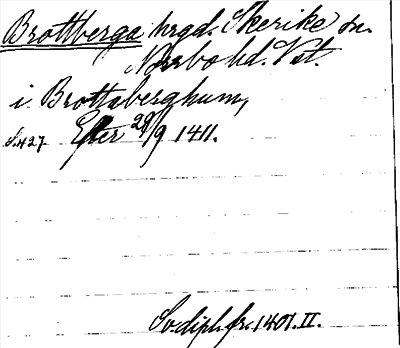 Brottberga hrgd. Skerike sn.
Norrbo hd. Vst.
i Brottaberghum,
S. 427 Efter 29/9 1411.
Sv. dipl. fr. 1401. II.